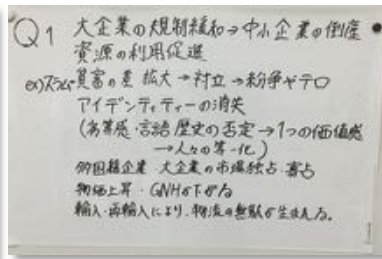 Q1 大企業の規制緩和→中小企業の倒産
資源の利用促進
ex)スラム 貧富の差 拡大→対立→紛争やテロ
アイデンティティーの消失
(劣等感・言語 歴史の否定→1つの価値感
→人々の等一化)
多国籍企業 大企業の市場独占・寡占
物価上昇・GNHが下がる
輸入・再輸入により、物流の無駄が生まれる。